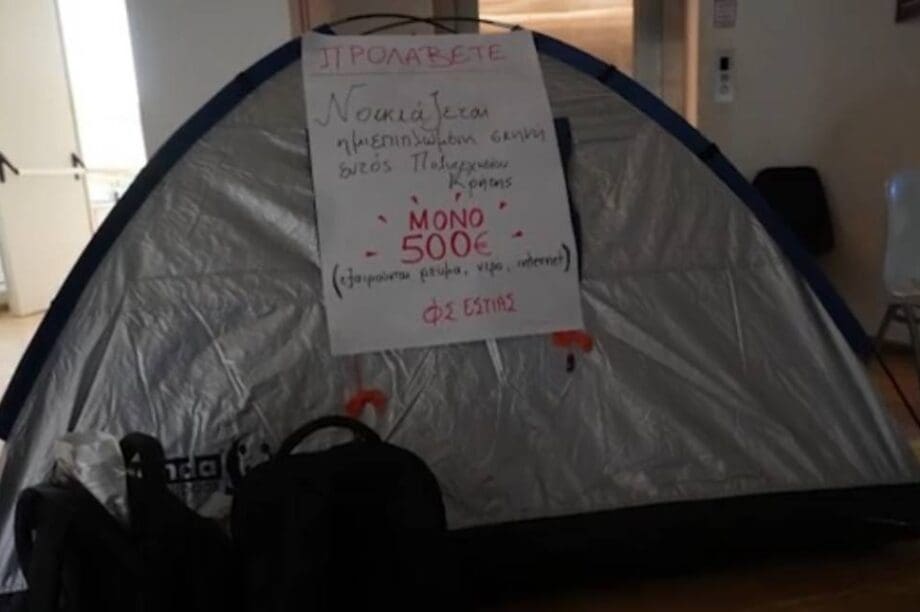 ΠΡΟΛΑΒΕΤΕ
Νοικιάζεται
ημιεπιπλωμένη σκηνή
εντός Πανεπιστημίου
Κρήτης
ΜΟΝΟ
500€
(εξαιρούνται ρεύμα, νερό, internet)
ΦΣ ΕΣΤΙΑΣ